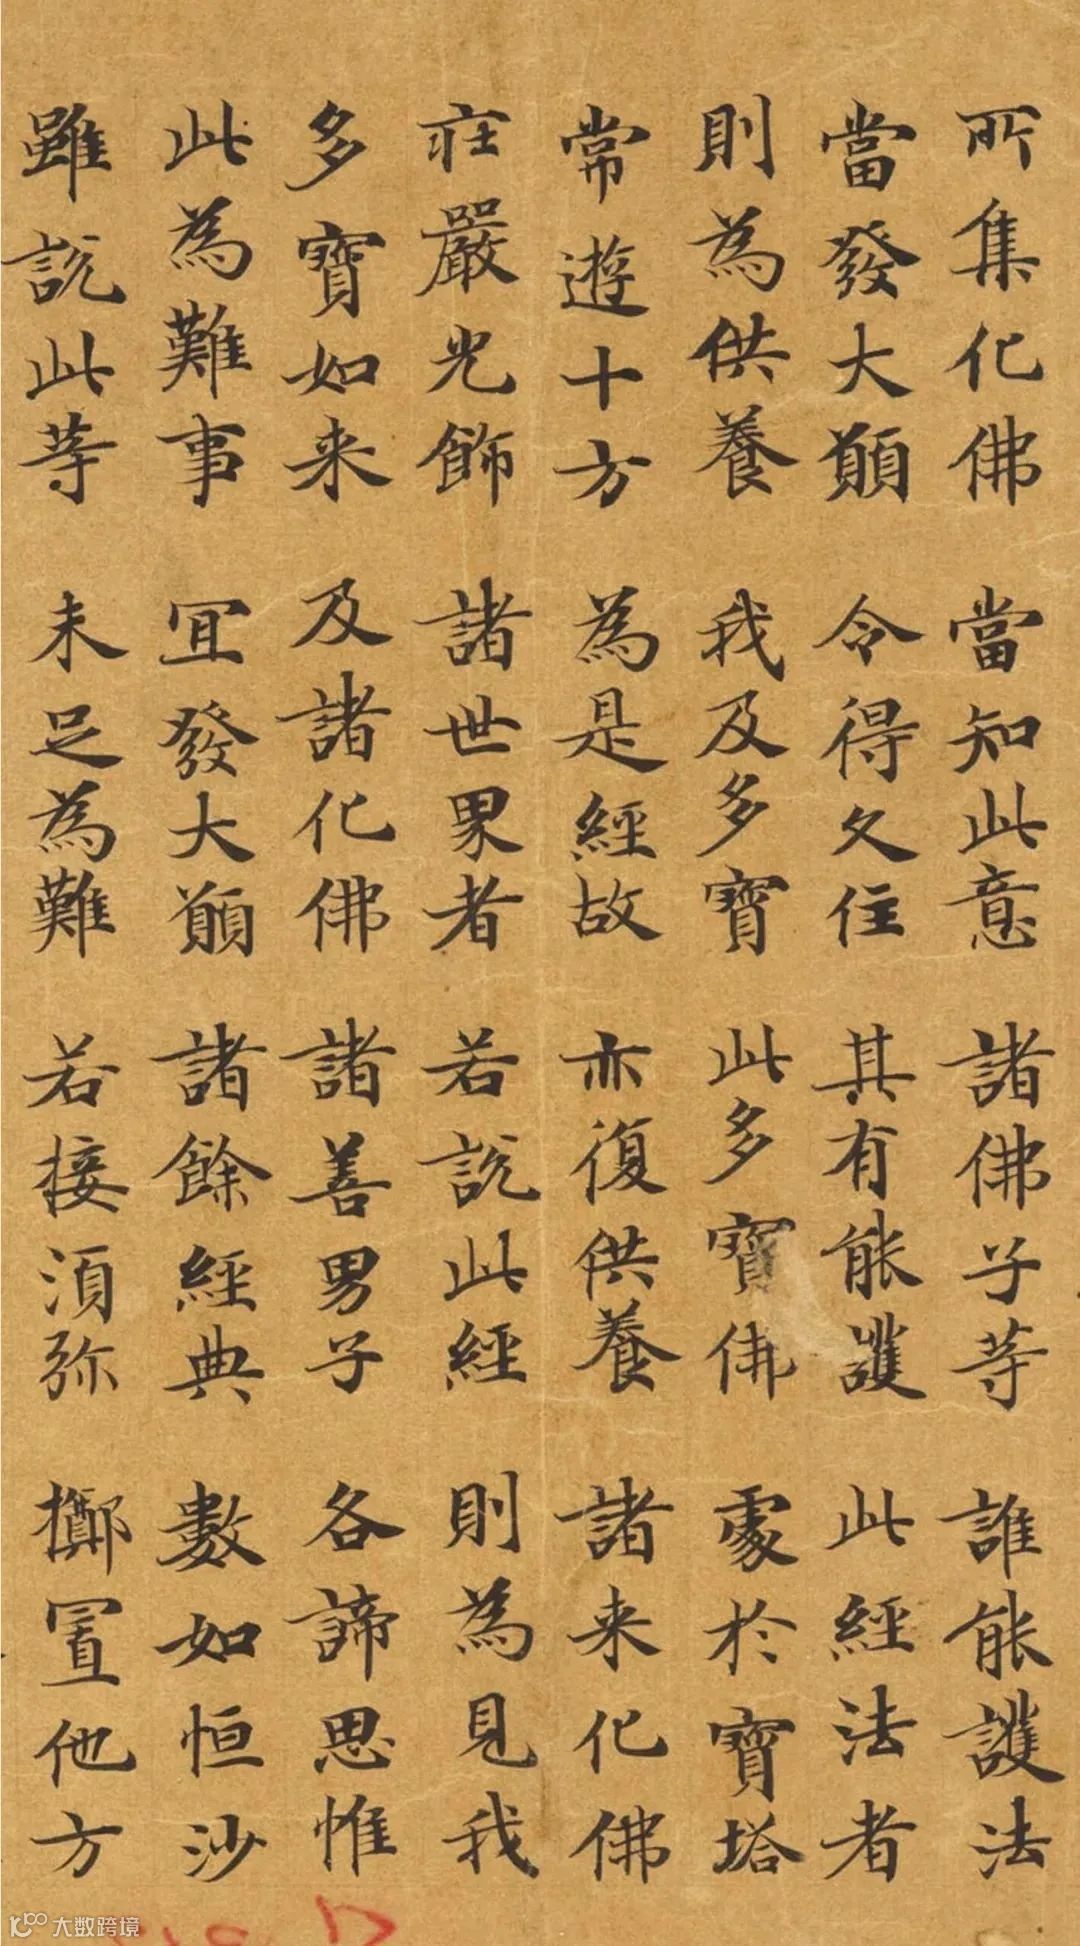 所集化佛 當知此意 諸佛子等 誰能護法
當發大願 令得久住 其有能護 此經法者
則為供養 我及多寶 此多寶佛 處於寶塔
常遊十方 為是經故 亦復供養 諸来化佛
莊嚴光飾 諸世界者 若說此經 則為見我
多寶如来 及諸化佛 諸善男子 各諦思惟
此為難事 宜發大願 諸餘經典 數如恒沙
雖說此等 未足為難 若接須弥 擲置他方
大数跨境